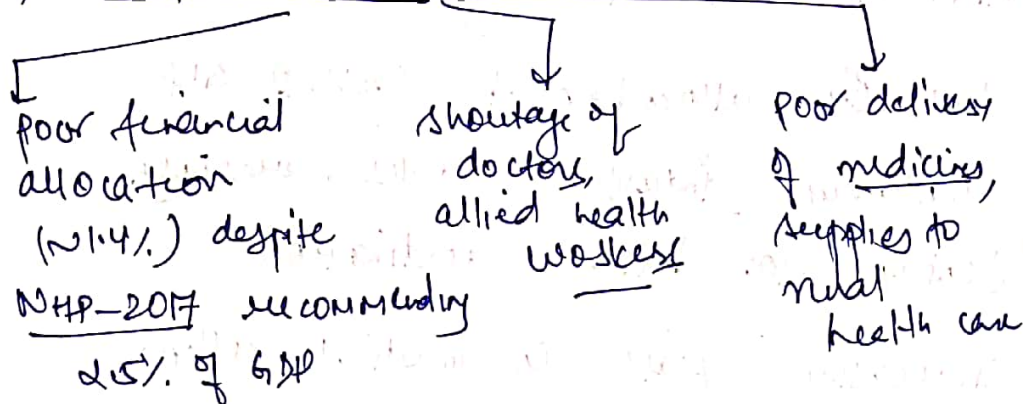 poor financial
allocation
(~1.4%) despite
NHP-2017 recommending
2.5% of GDP
shortage of
doctors,
allied health
workers
poor delivery
of medicines,
supplies to
rural
health care